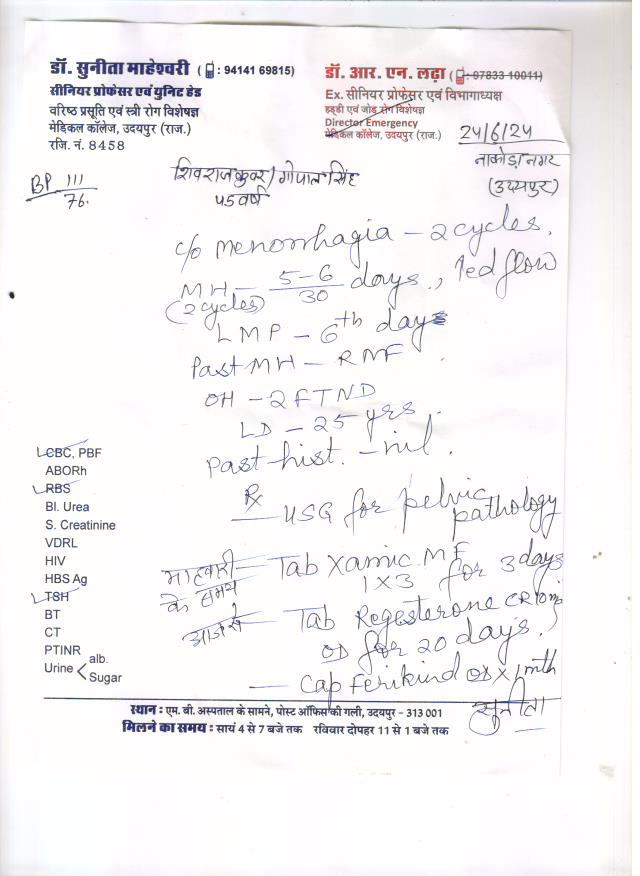 डॉ. सुनीता माहेश्वरी ( : 94141 69815)
सीनियर प्रोफेसर एवं युनिट हेड
वरिष्ठ प्रसूति एवं स्त्री रोग विशेषज्ञ
मेडिकल कॉलेज, उदयपुर (राज.)
रजि. नं. 8458
डॉ. आर. एन. लढ़ा ( : 97833 10011)
Ex. सीनियर प्रोफेसर एवं विभागाध्यक्ष
हड्डी एवं जोड़ रोग विशेषज्ञ
Director Emergency
मेडिकल कॉलेज, उदयपुर (राज.)
24/6/24
नाकोड़ा नगर
(उदयपुर)
BP 111
76.
शिवराज कुंवर / गोपाल सिंह
45 वर्ष
c/o Menorrhagia - 2 cycles.
MH - 5-6/30 days, red flow
(2 cycles)
LMP - 6th day
Past MH - RMF
OH - 2 FTND
LD - 25 yrs.
Past hist. - nil.
CBC, PBF
ABORh
RBS
Bl. Urea
S. Creatinine
VDRL
HIV
HBS Ag
TSH
BT
CT
PTINR
Urine alb.
Sugar
Rx
- USG for pelvic pathology
माहवारी के समय - Tab Xamic MF
1 x 3 for 3 days
आज से - Tab Regesterone CR 10mg
OD for 20 days.
- Cap Ferikind OD x 1 mth
सुनीता
स्थान : एम. बी. अस्पताल के सामने, पोस्ट ऑफिस की गली, उदयपुर - 313 001
मिलने का समय : सायं 4 से 7 बजे तक रविवार दोपहर 11 से 1 बजे तक